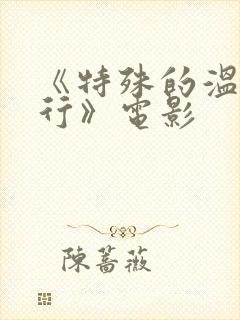 《特殊的溫
行》電影
陳薔薇